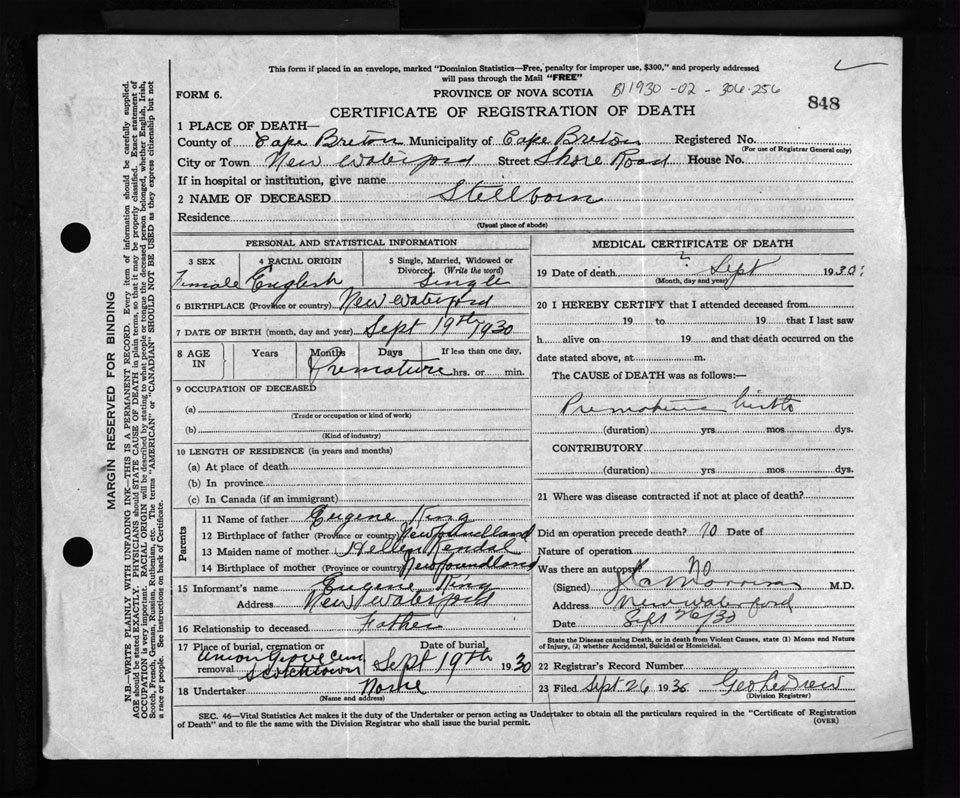 This form if placed in an envelope, marked "Dominion Statistics—Free, penalty for improper use, $300," and properly addressed
will pass through the Mail "FREE"
FORM 6.
PROVINCE OF NOVA SCOTIA 1930-02-306-256
CERTIFICATE OF REGISTRATION OF DEATH
848
1 PLACE OF DEATH—
County of Cape Breton Municipality of Cape Breton Registered No.
(For use of Registrar General only)
City or Town New Waterford Street Shore Road House No.
If in hospital or institution, give name
2 NAME OF DECEASED Stillborn
Residence
(Usual place of abode)
PERSONAL AND STATISTICAL INFORMATION
3 SEX Female
4 RACIAL ORIGIN English
5 Single, Married, Widowed or Divorced. (Write the word) Single
6 BIRTHPLACE (Province or country) New Waterford
7 DATE OF BIRTH (month, day and year) Sept 19th 1930
8 AGE IN Years Months Days If less than one day, hrs. or min.
Premature
9 OCCUPATION OF DECEASED
(a)
(Trade or occupation or kind of work)
(b)
(Kind of industry)
10 LENGTH OF RESIDENCE (in years and months)
(a) At place of death
(b) In province
(c) In Canada (if an immigrant)
Parents
11 Name of father Eugene King
12 Birthplace of father (Province or country) Newfoundland
13 Maiden name of mother Hellen Kendal
14 Birthplace of mother (Province or country) Newfoundland
15 Informant's name Eugene King
Address New Waterford
16 Relationship to deceased Father
17 Place of burial, cremation or removal Union Grove Cem Scotchtown
Date of burial Sept 19th 1930
18 Undertaker None
(Name and address)
MEDICAL CERTIFICATE OF DEATH
19 Date of death ? Sept 1930
(Month, day and year)
20 I HEREBY CERTIFY that I attended deceased from
19 to 19 that I last saw
h alive on 19 and that death occurred on the
date stated above, at m.
The CAUSE of DEATH was as follows:—
Premature birth
(duration) yrs. mos dys.
CONTRIBUTORY
(duration) yrs. mos. dys.
21 Where was disease contracted if not at place of death?
Did an operation precede death? No Date of
Nature of operation
Was there an autopsy? No
(Signed) M.D.
Address New Waterford
Date Sept 26/30
State the Disease causing Death, or in death from Violent Causes, state (1) Means and Nature
of Injury, (2) whether Accidental, Suicidal or Homicidal.
22 Registrar's Record Number
23 Filed Sept 26 1930 Geo LeDrew
(Division Registrar)
SEC. 46—Vital Statistics Act makes it the duty of the Undertaker or person acting as Undertaker to obtain all the particulars required in the "Certificate of Registration
of Death" and to file the same with the Division Registrar who shall issue the burial permit.
(OVER)
MARGIN RESERVED FOR BINDING
N.B.—WRITE PLAINLY WITH UNFADING INK—THIS IS A PERMANENT RECORD. Every item of information should be carefully supplied.
AGE should be stated EXACTLY. PHYSICIANS should STATE CAUSE OF DEATH in plain terms, so that it may be properly classified. Exact statement of
OCCUPATION is very important. RACIAL ORIGIN will be described by stating to what people or tongue the deceased person belonged, whether English, Irish,
Scotch, French, German, Russian, Ruthenian, etc. The terms "AMERICAN" or "CANADIAN" SHOULD NOT BE USED as they express citizenship but not
a race or people. See instructions on back of Certificate.